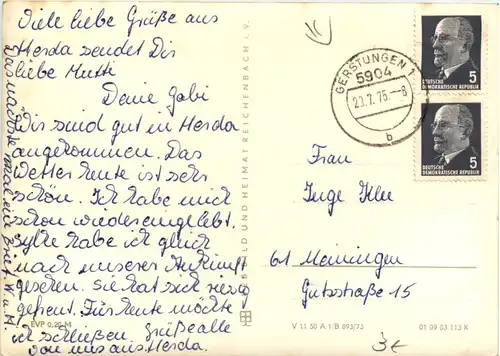 Viele liebe Grüße aus
Herda sendet Dir
liebe Mutti
Deine Gabi
Wir sind gut in Herda
angekommen. Das
Wetter heute ist sehr
schön. Ich habe mich
schon wiedereingelebt.
Sylke habe ich gleich
nach unserer Ankunft
gesehen. Sie hat sich riesig
gefreut. Für heute möchte
ich schließen. Grüße alle
von mir aus Herda.
Das nächste mal ein Brief.
BILD UND HEIMAT REICHENBACH i. V.
EVP 0,20 M
GERSTUNGEN 1
5904
20.7.75.-8
b
DEUTSCHE
DEMOKRATISCHE REPUBLIK
5
DEUTSCHE
DEMOKRATISCHE REPUBLIK
5
Frau
Inge
61 Meiningen
Gutsstraße 15
V 11 50 A 1/B 893/73
01 09 03 113 K